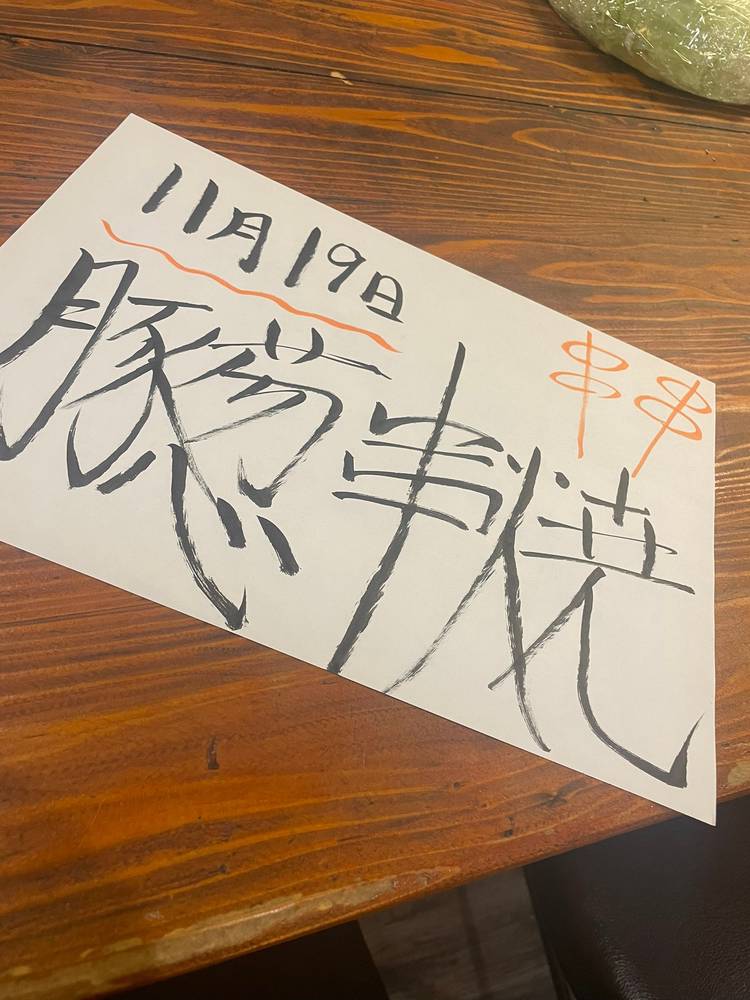 11月19日
串串
豚葱串焼